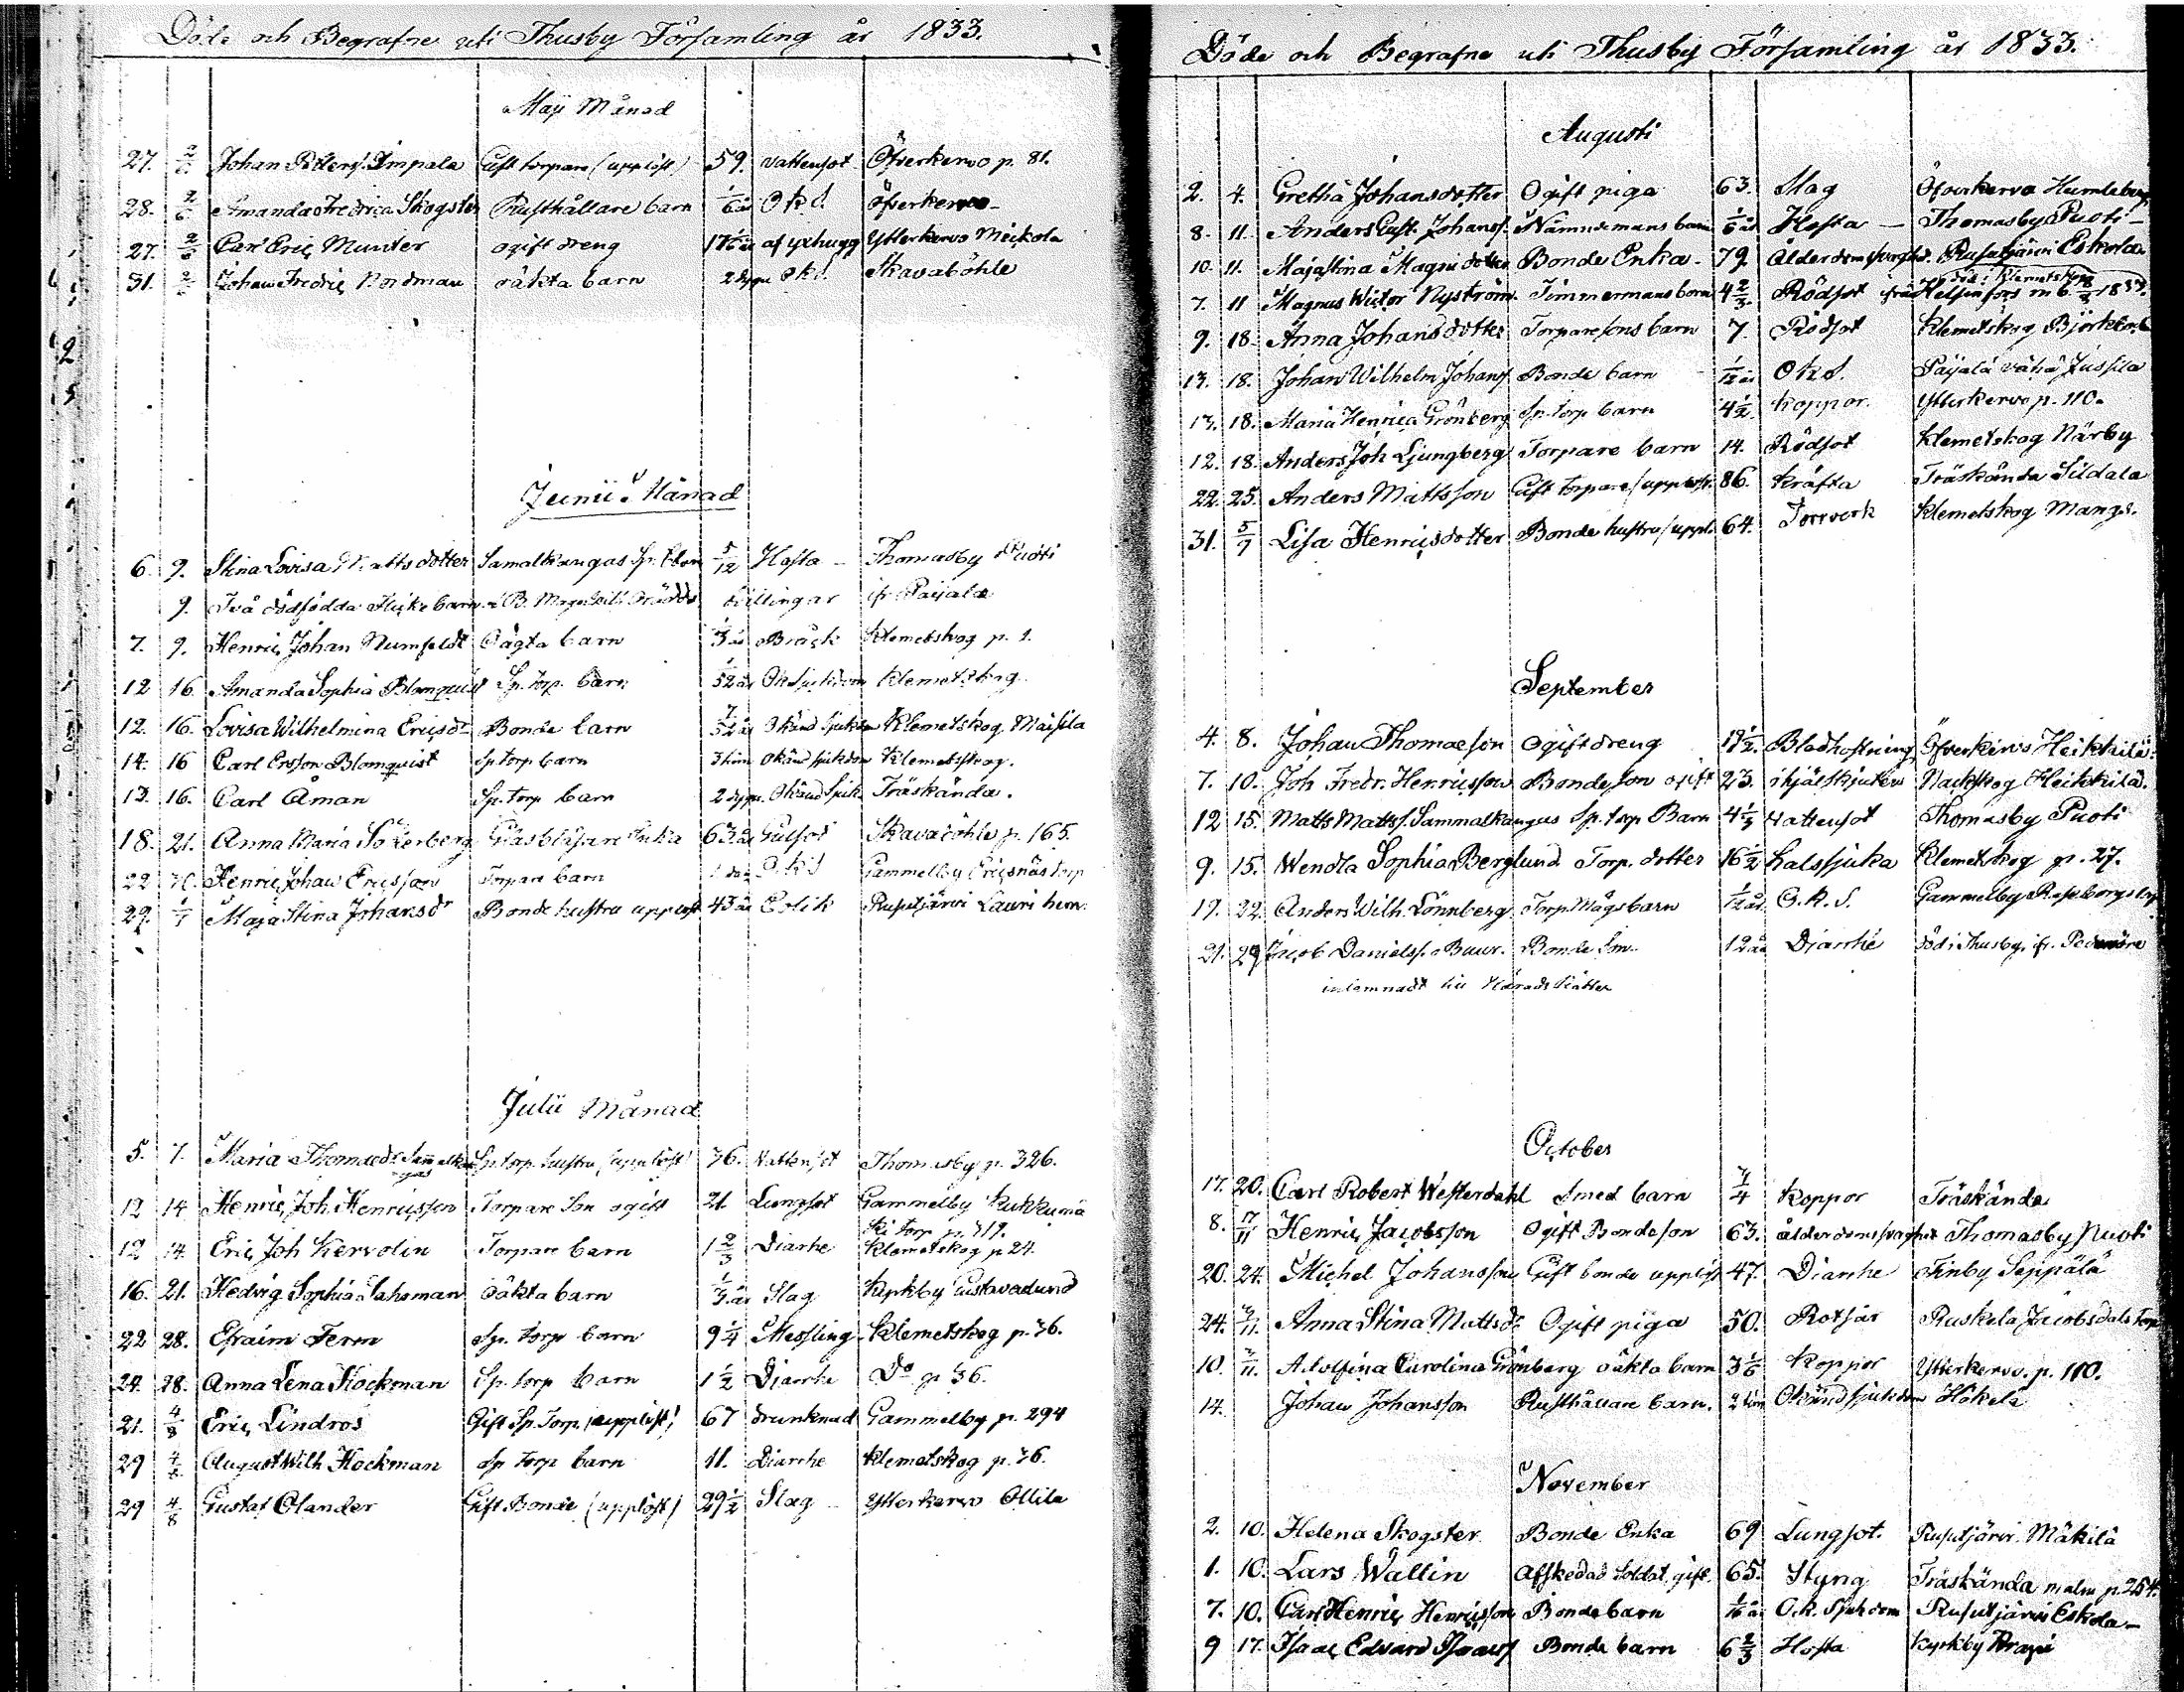 Döde och Begrafne uti Thusby Församling år 1833.
Maÿ Månad
27. 2/6 Johan Petters. Impala Gift torpare (upplöst) 59. vattensot Öfverkervo p. 81.
28. 2/6 Amanda Fredrica Skogster Rusthållare barn 1/6 år O k d Öfverkervo
27. 2/6 Carl Eric Munter ogift dreng af yxhugg Ytterkervo Meickola
31. 2/6 Johan Fredric Nordman oäkta barn 2 dygn Skavaböhle
Junii Månad
6. 9. Stina Lovisa Mattsdotter Samalkangas Sp. t. barn 5/12 Hosta Thomasby Puoti
9. Två dödfödda flickebarn tvillingar fr Paijala
7. 9. Henric Johan Numfeldt Oägta barn 1/3 år Bråck Klemetskog p. 1.
12 16. Amanda Sophia Blomquist Sp. torp. barn Ok Sjukdom Klemetskog.
12. 16. Lovisa Wilhelmina Ericsdr Bonde barn Okänd Sjukdom Klemetskog Maisila
14. 16 Carl Ersson Blomquist Sp. torp barn 3 tim Okänd sjukdom Klemetskog.
13. 16. Carl Åman Sp. torp barn 2 dygn. Okänd Sjuk. Träskända.
18. 21. Anna Maria Söderberg Glasblåsare Enka 63 år Gulsot Skavaböhle p. 165.
22 30. Henric Johan Ericsson Torpare barn Gammelby Ericsnäs torp
29. 1/7 Maja Stina Johansdr Bonde hustru upplöst 43 år Colik Rusutjärvi Lauri hem.
Julii Månad
5. 7. Maria Thomaedr Sammalkangas Sp. torp. hustru (upplöst) 36. Vattensot Thomasby p. 326.
12 14 Henric Joh. Henricsson Torpare Son ogift 21. Lungsot Gammelby Kukkumäki torp p. 319.
12 14. Eric Joh Kervolin Torpare barn 1 2/3 Diarrhe Klemetskog p 24.
16. 21. Hedvig Sophia Sahsman oäkta barn 1/3 år Slag Kyrkby Gustavadund
22 28. Efraim Ferm Sp. torp barn 9 1/4 Messling Klemetskog p. 36.
24. 28. Anna Lena Hockman Sp. torp barn 1 1/2 Djarrhe Do p 36.
21. 4/8 Eric Lindros Gift Sp. Torp. (upplöst) 67 drunknad Gammelby p. 294
29 4/8 August Wilh Hockman Sp torp barn 11. Diarrhe Klemetskog p. 36.
29 4/8 Gustaf Olander Gift Bonde (upplöst) 29 1/2 Slag Ytterkervo Ollila
Döde och Begrafne uti Thusby Församling år 1833.
Augusti
2. 4. Gretha Johansdotter Ogift piga 63. Slag Öfverkervo Humleberg
8. 11. Anders Gust. Johanss. Nämndemans barn 1/6 år Hosta Thomasby Puoti
10. 11. Maja Stina Magnidotter Bonde Enka 79. Ålderdomssvaghet. Rusutjärvi Eskola
7. 11 Magnus Victor Nyström. Timmermans barn 4 2/3. Rödsot ifrå Helsinfors
9. 18. Anna Johansdotter Torparesons barn 7. Rödsot Klemetskog Björkbacka
13. 18. Johan Wilhelm Johans Bonde barn 1/12 år O k d. Paijala vähä Jussila
13. 18. Maria Henrica Grönberg Sp. torp barn 4 1/2. Koppor. Ytterkervo p. 110.
12. 18. Anders Joh Ljungberg Torpare barn 14. Rödsot Klemetskog Närby
22. 25. Anders Mattsson Gift torpare (upplöst) 86. Kräfta Träskända Sildala
31. 5/9 Lisa Henricsdotter Bonde hustru (uppl. 64. Torrverk Klemetskog Mangs.
September
4. 8. Johan Thomaeson Ogift dreng 19 1/2. Blodhostning Öfverkervo Heikkilä.
7. 10. Joh Fredr. Henricsson Bondeson ogift 23. ihjälskjuten Nackskog Heikkilä.
12 15. Matts Matts. Sammalkangas Sp. torp Barn 4 1/3 Vattensot Thomasby Puoti
9. 15. Wendla Sophia Berglund Torp. dotter 16 1/2 halssjuka Klemetskog p. 27.
19. 22. Anders Wilh. Lönnberg Torp Mågs barn 1/12 år. O. k. S. Gammelby
21. 29 Jacob Daniels. Baur. Bonde Son 12 år Djarrhe död i Thusby, fr. Pedersöre
inlemnadt til Härads Rätten
October
17. 20. Carl Robert Westerdahl Smed barn 3/4 Koppor Träskända
8. 17/11 Henric Jacobsson Ogift Bondeson 63. ålderdomssvaghet Thomasby Puoti
20. 24. Michel Johansson Gift bonde upplöst 47. Diarrhe Finby Seppälä
24. 3/11. Anna Stina Mattsdr Ogift piga 50. Rotsår Ruskela Jacobsdals torp
10. 3/11. Adolfina Carolina Grönberg oäkta barn 3 1/6 Koppor Ytterkervo. p. 110.
14. Johan Johansson Rusthållare barn. 2 tim Okänd sjukdom Hökelä
November
2. 10. Helena Skogster Bonde Enka 69 Lungsot. Rusutjärvi. Mäkilä
1. 10. Lars Wallin Afskedad Soldat, gift. 65. Styng Träskända malm p. 254.
7. 10. Carl Henric Henricsson Bonde barn O. k. Sjukdom Rusutjärvi Eskola
9 17. Isaac Edvard Isaacs Bonde barn 6 2/3 Hosta Kyrkby